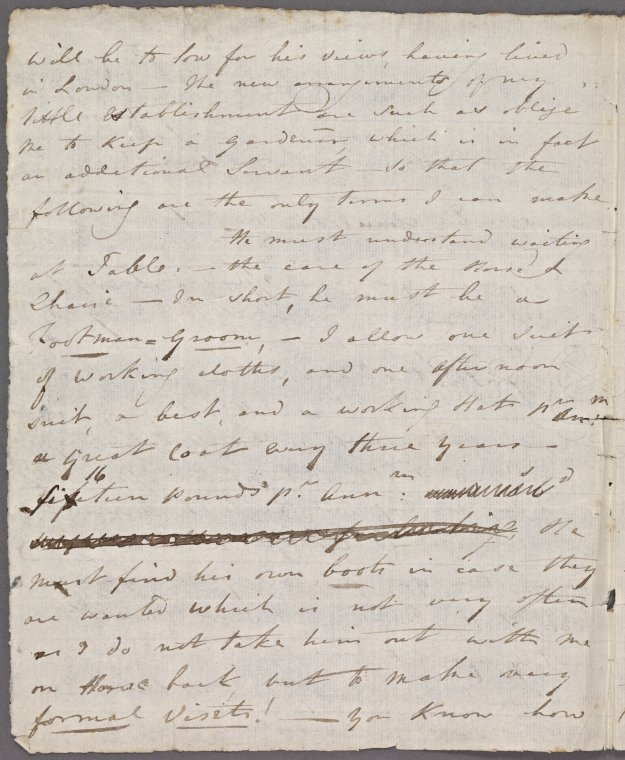 will be to low for his views, having lived
in London — The new arrangements of my
little establishment are such as oblige
me to keep a Gardener, which is in fact
an additional Servant — so that the
following are the only terms I can make.
He must understand waiting
at Table. — the care of the Horse &
Chaise — In short, he must be a
Footman = Groom, — I allow one suit
of working cloths, and one afternoon
suit, a best, and a working Hat pr Annm
a Great Coat every three years —
16
sixteen pounds pr Annm
He
must find his own boots in case they
are wanted which is not very often
as I do not take him out with me
on Horse back, but to make very
formal Visits! — You Know how